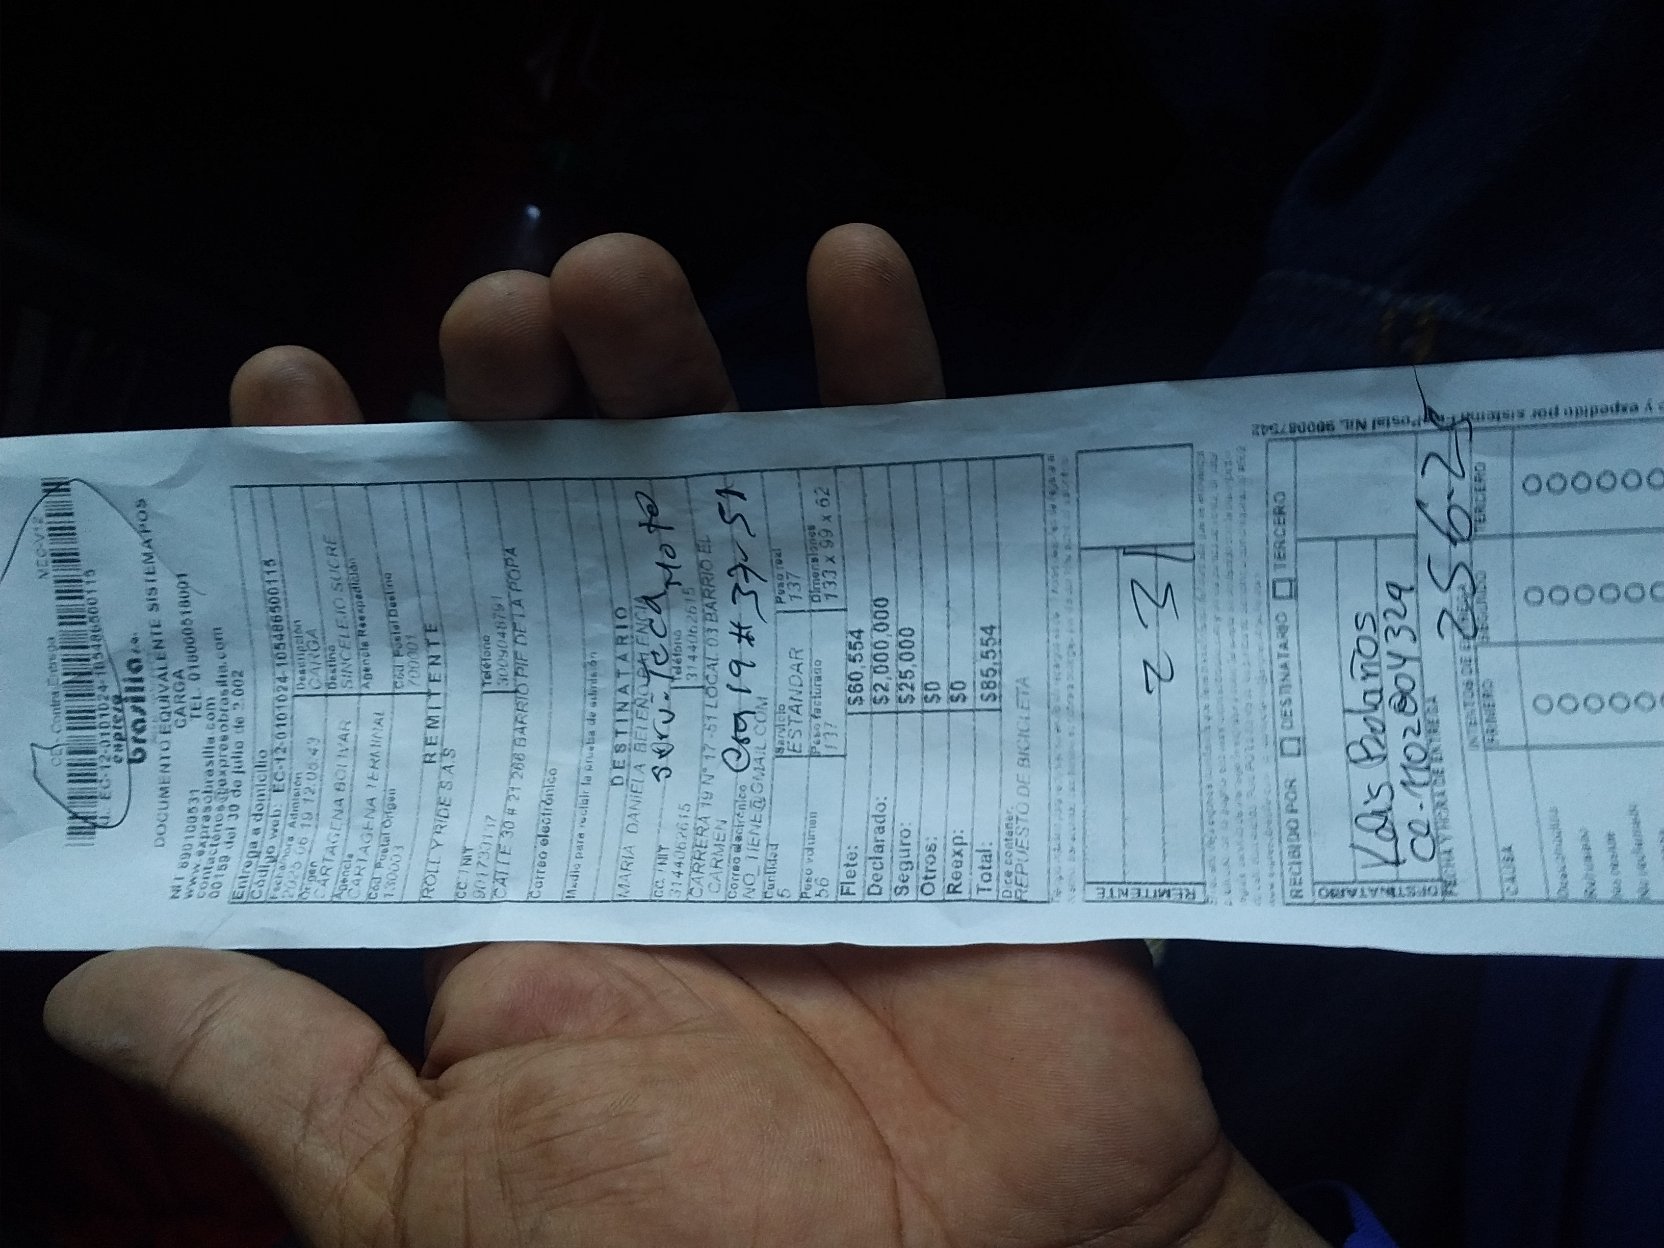 CE - Contra Entrega
MEC-V12
EC-12-0101024-1054865001​15
expreso
brasilia
DOCUMENTO EQUIVALENTE SISTEMA POS
CARGA
Nit 890100531 TEL. 018000518001
www.expresobrasilia.com
contactenos@expresobrasilia.com
00189 del 30 de julio de 2.002
Entrega a domicilio
Código web: EC-12-0101024-105486500115
Fecha/hora Admisión
19 12:05:49
Descripción
CARGA
Origen
CARTAGENA BOLIVAR
Destino
SINCELEJO SUCRE
Agencia
CARTAGENA TERMINAL
Agencia Reexpedición
Cód Postal Origen
130003
Cód Postal Destino
700001
REMITENTE
ROLLY RIDE S.A.S
CC / NIT
Teléfono
CALLE 30 # 21 266 BARRIO PIE DE LA POPA
Correo electrónico
Medio para recibir la prueba de admisión
DESTINATARIO
MARIA DANIELA
CC / NIT
3144062615
Teléfono
3144062615
CARRERA 19 N° 17-51 LOCAL 03 BARRIO EL
CARMEN
Cra 19 # 37-51
Correo electrónico
NO_TIENE@GMAIL.COM
Cantidad
5
Servicio
ESTANDAR
Peso real
137
Peso volumen
56
Peso facturado
137
Dimensiones
133 x 99 x 62
Flete: $60,554
Declarado: $2,000,000
Seguro: $25,000
Otros: $0
Reexp: $0
Total: $85,554
Dce contener:
REPUESTO DE BICICLETA
REMITENTE
231
RECIBIDO POR DESTINATARIO TERCERO
DESTINATARIO
Bolaños
CC-1102804329
FECHA Y HORA DE ENTREGA
25 6-25
INTENTOS DE ENTREGA
CAUSA PRIMERO SEGUNDO TERCERO
Desconocido
Rehusado
No reside
No reclamado
y expedido por sistema
Postal Nit. 900087542